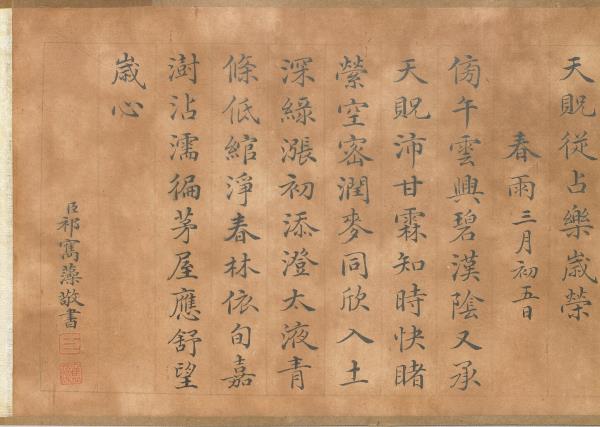 天貺從占樂歲榮
春雨三月初五日
傍午雲興碧漢陰又承
天貺沛甘霖知時快睹
縈空密潤麥同欣入土
深綠漲初添澄太液青
條低綰淨春林依旬嘉
澍沾濡徧茅屋應舒望
歲心
臣祁寯藻敬書